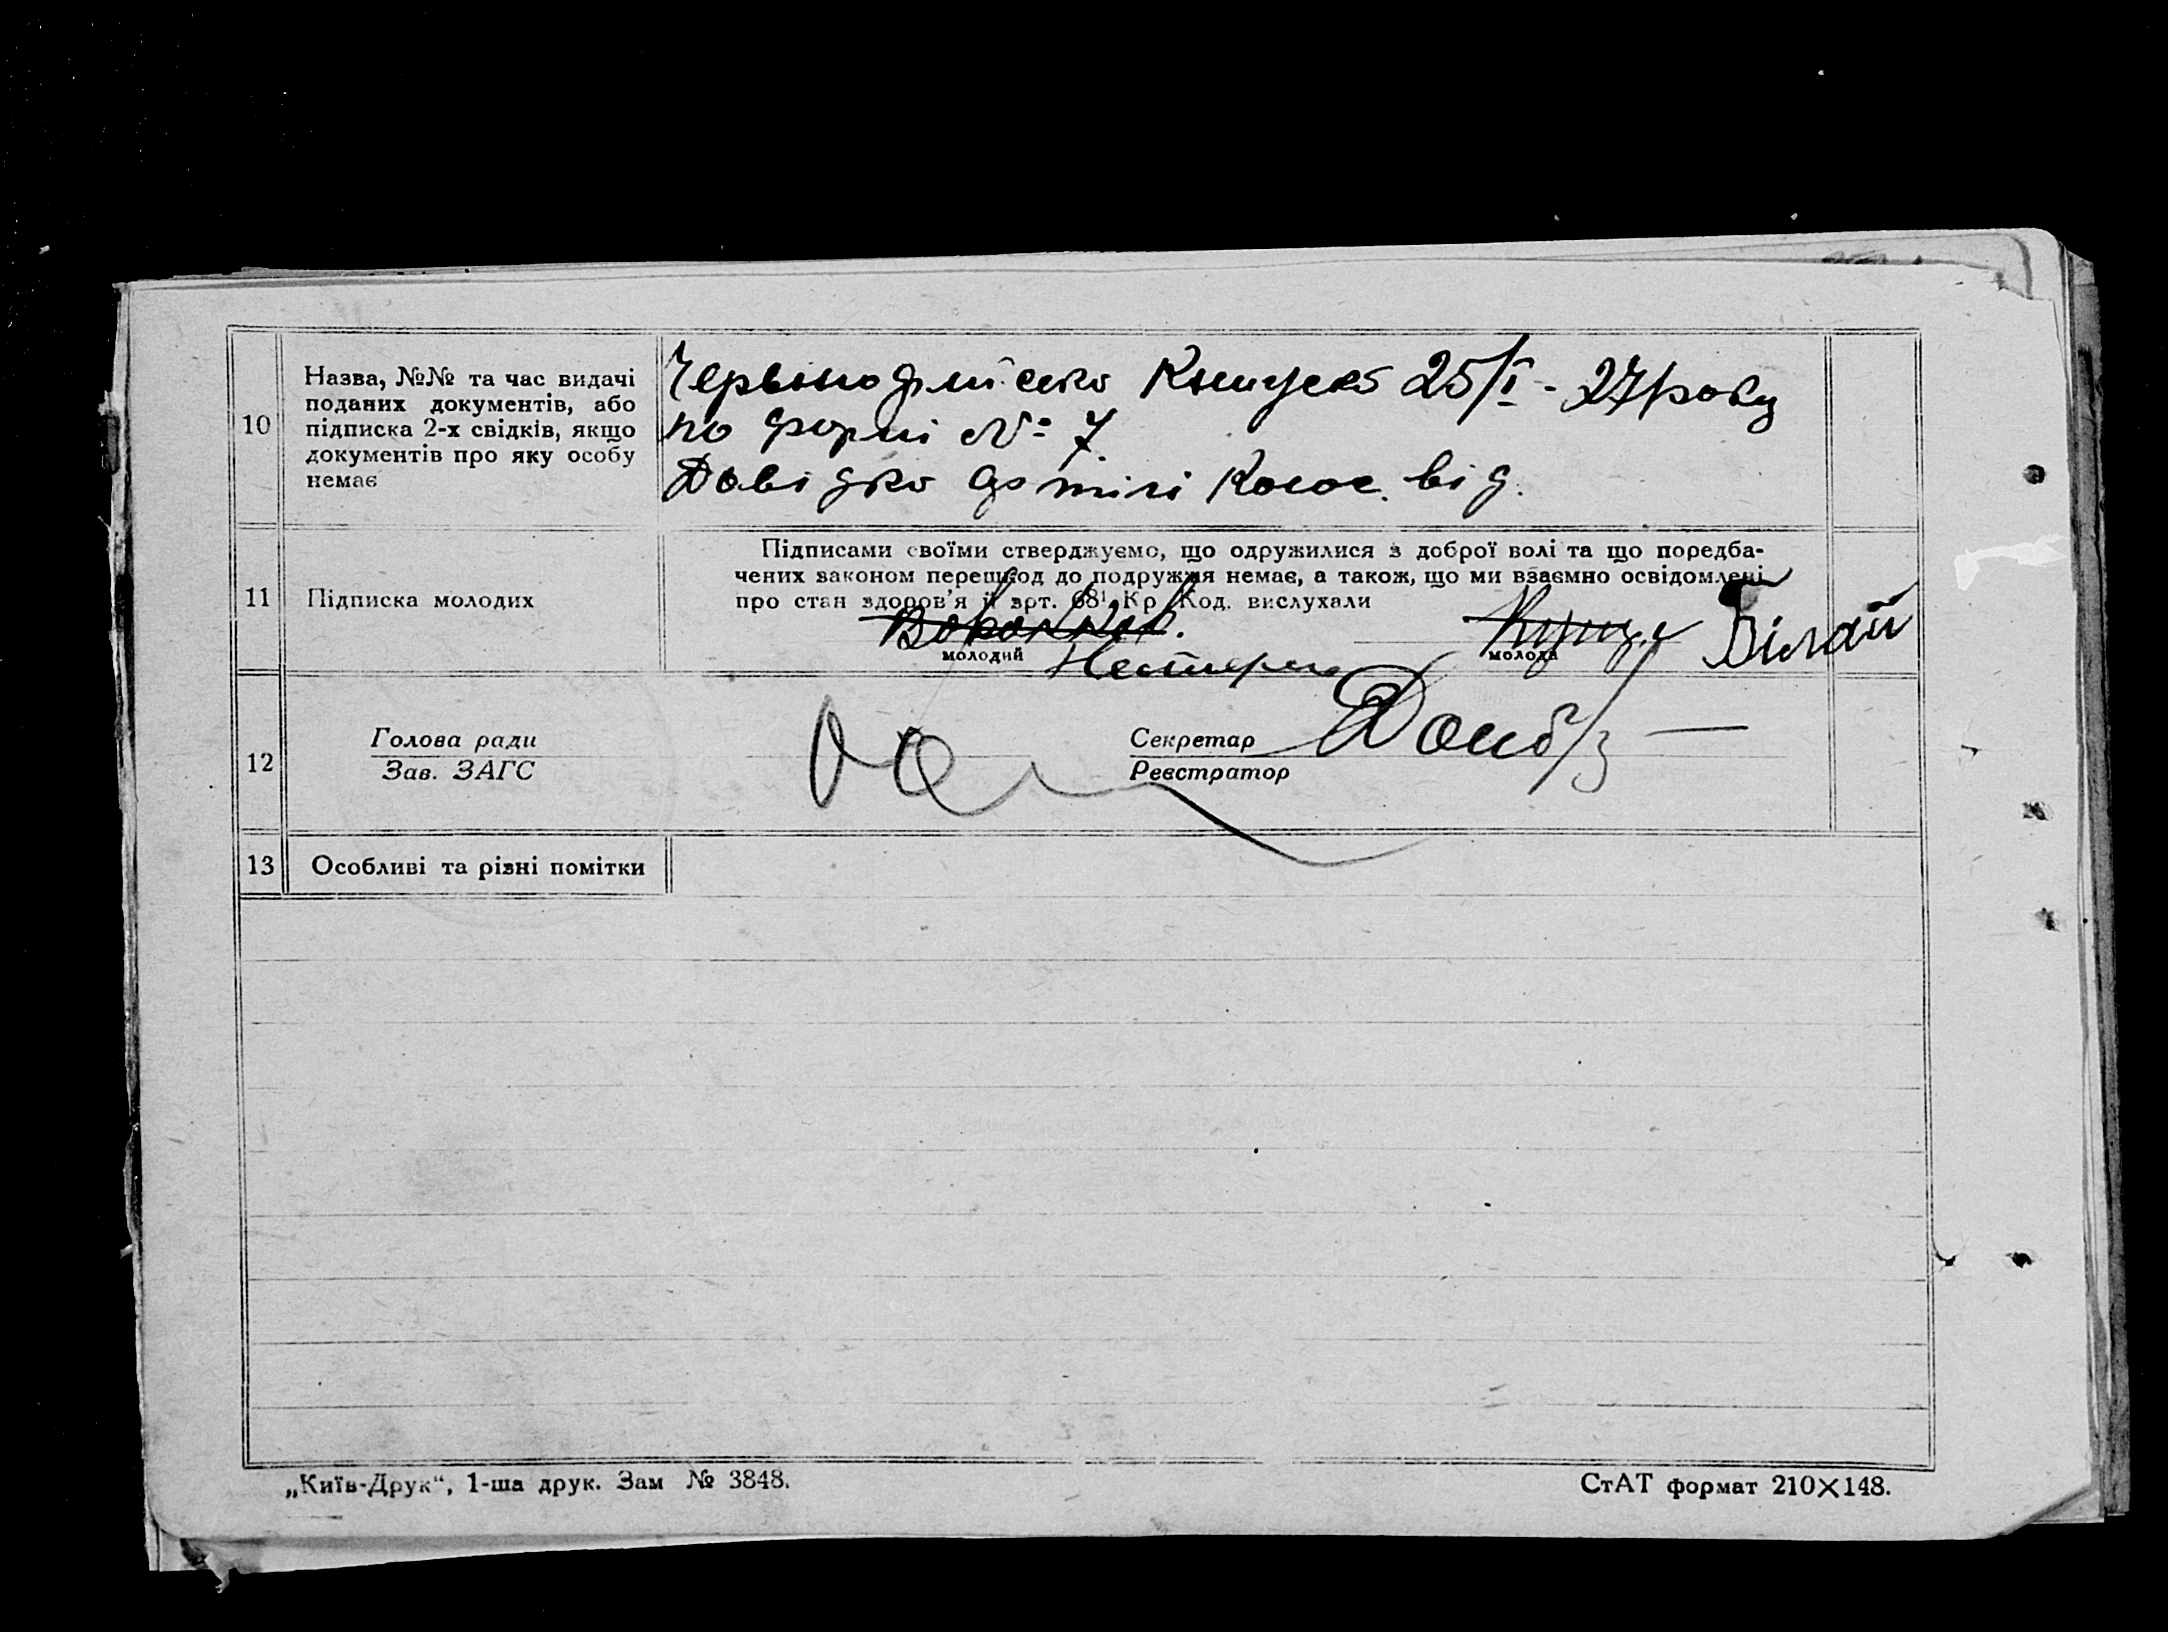 10
Назва, №№ та час видачі
поданих документів, або
підписка 2-х свідків, якщо
документів про яку особу
немає
25/I - 27 року
по формі № 7
Довідка
від.
11
Підписка молодих
Підписами своїми стверджуємо, що одружилися з доброї волі та що поредба-
чених законом перешкод до подружжя немає, а також, що ми взаємно освідомлені
про стан здоров'я й арт. 68¹ Кр Код. вислухали
молодий
молода
Білай
12
Голова ради
Зав. ЗАГС
Секретар
Реєстратор
13
Особливі та різні помітки
„Київ-Друк“, 1-ша друк. Зам № 3848.
СтАТ формат 210×148.